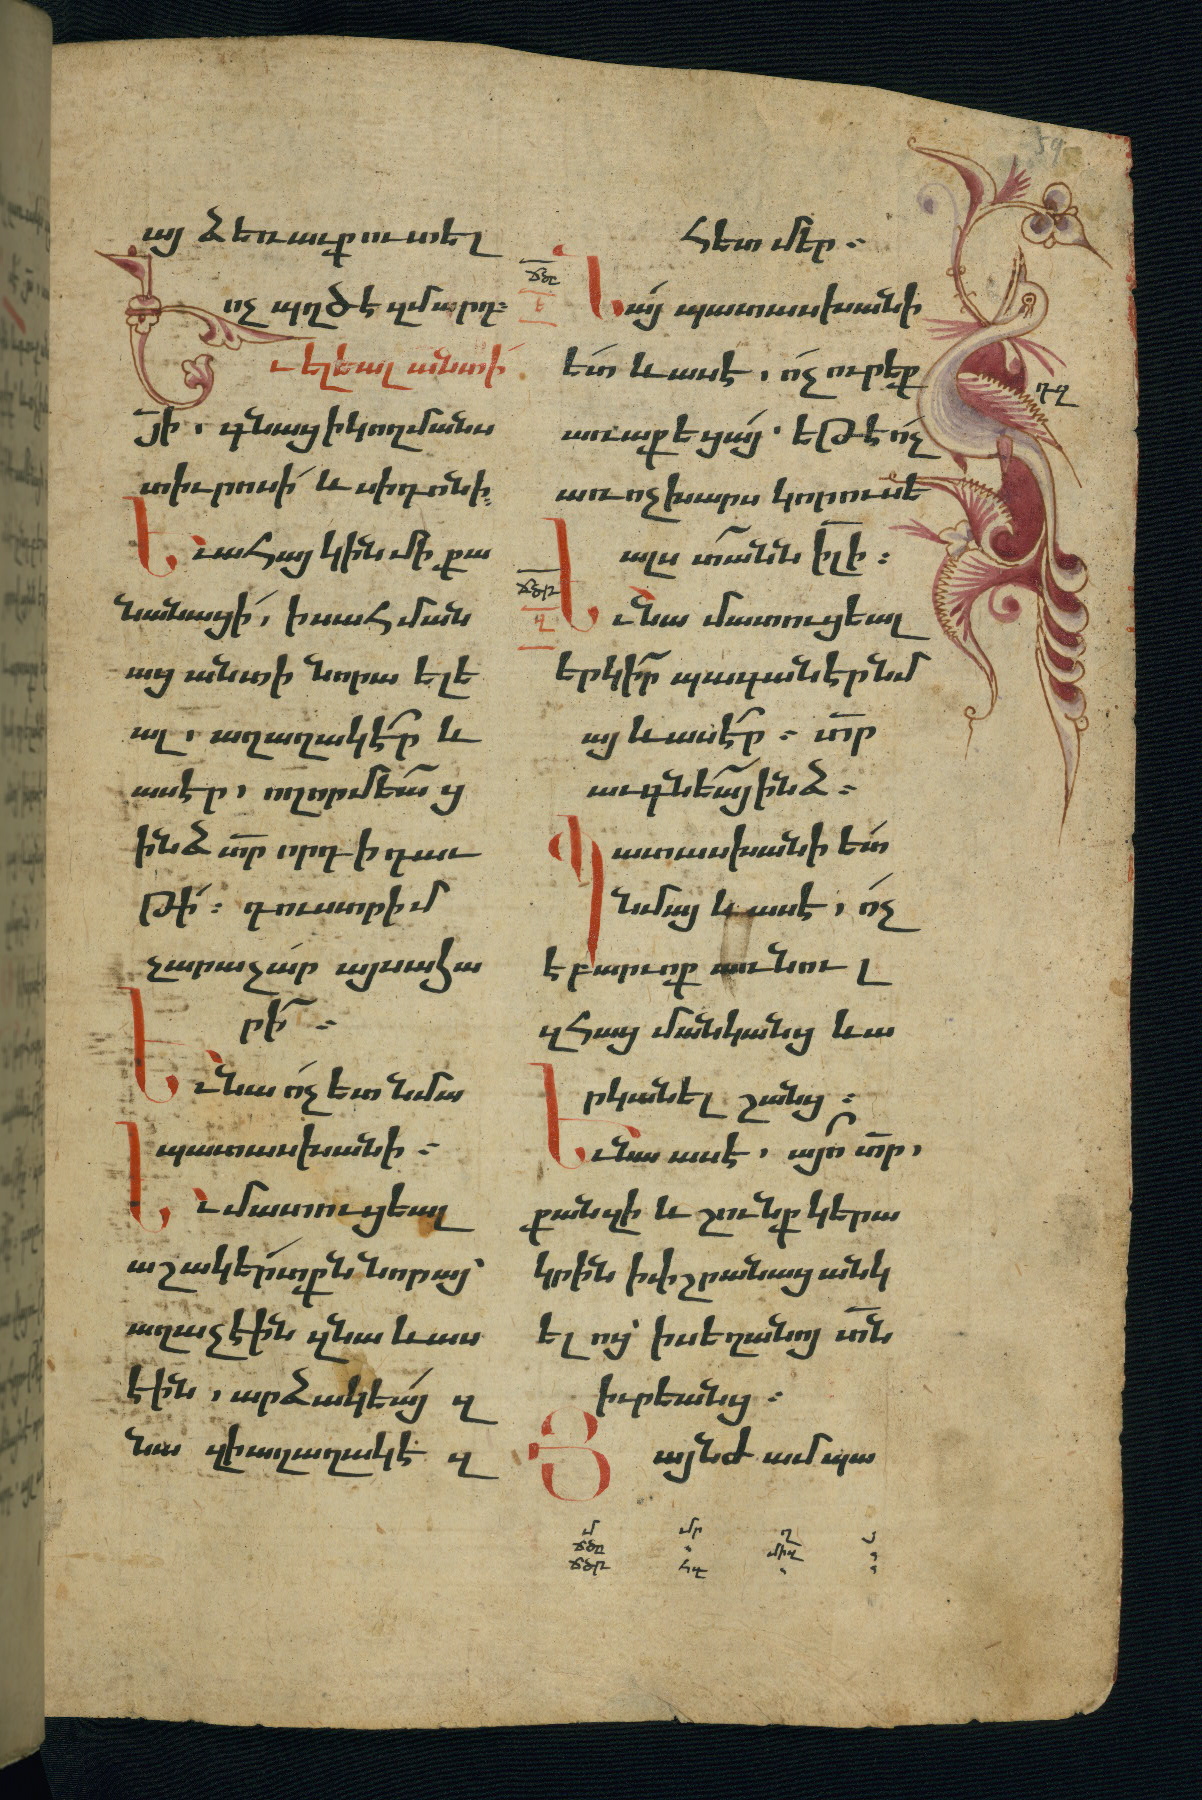 այ ձեռաւք ուտել
ոչ պղծէ զմարդ։
Եւ ելեալ անտի
յի, գնաց ի կողմանս
տիւրոսի և սիդոնի։
Եւ ահայ կին մի քա
նանացի, ի սահման
աց անտի նորա ելե
ալ, աղաղակէր և
ասէր, ողորմեաց
ինձ տր որդի դաւ
թի։ դուստր իմ
չարաչար այսահա
րի ։
Եւ նա ոչ ետ նմա
պատասխանի ։
Եւ մատուցեալ
աշակերտքն նորայ՝
աղաչէին զնա և աս
էին, արձակեայ զ
նա զի աղաղակէ զ
հետ մեր ։
ճծը
ե
Նայ պատասխանի
ետ և ասէ, ոչ ուրեք
առաքեցայ՝ եթէ ոչ
առ ոչխարս կորուսե
ալս տանն իլի ։
ճծթ
զ
Եւ նա մատուցեալ
երկիր պագանէր նմ
այ և ասէր ։ տր
աւգնեայ ինձ ։
Պատասխանի ետ
նմայ և ասէ, ոչ
է բարւոք առնուլ
զհաց մանկանց և ա
րկանել շանց ։
Եւ նա ասէ, այո տր,
քանզի և շունք կերա
կրին ի փշրանաց անկ
ելոց՝ ի սեղանոյ տն
իւրեանց ։
Յայնժ ամ պա
մ մր
ճծը
ճծթ հզ